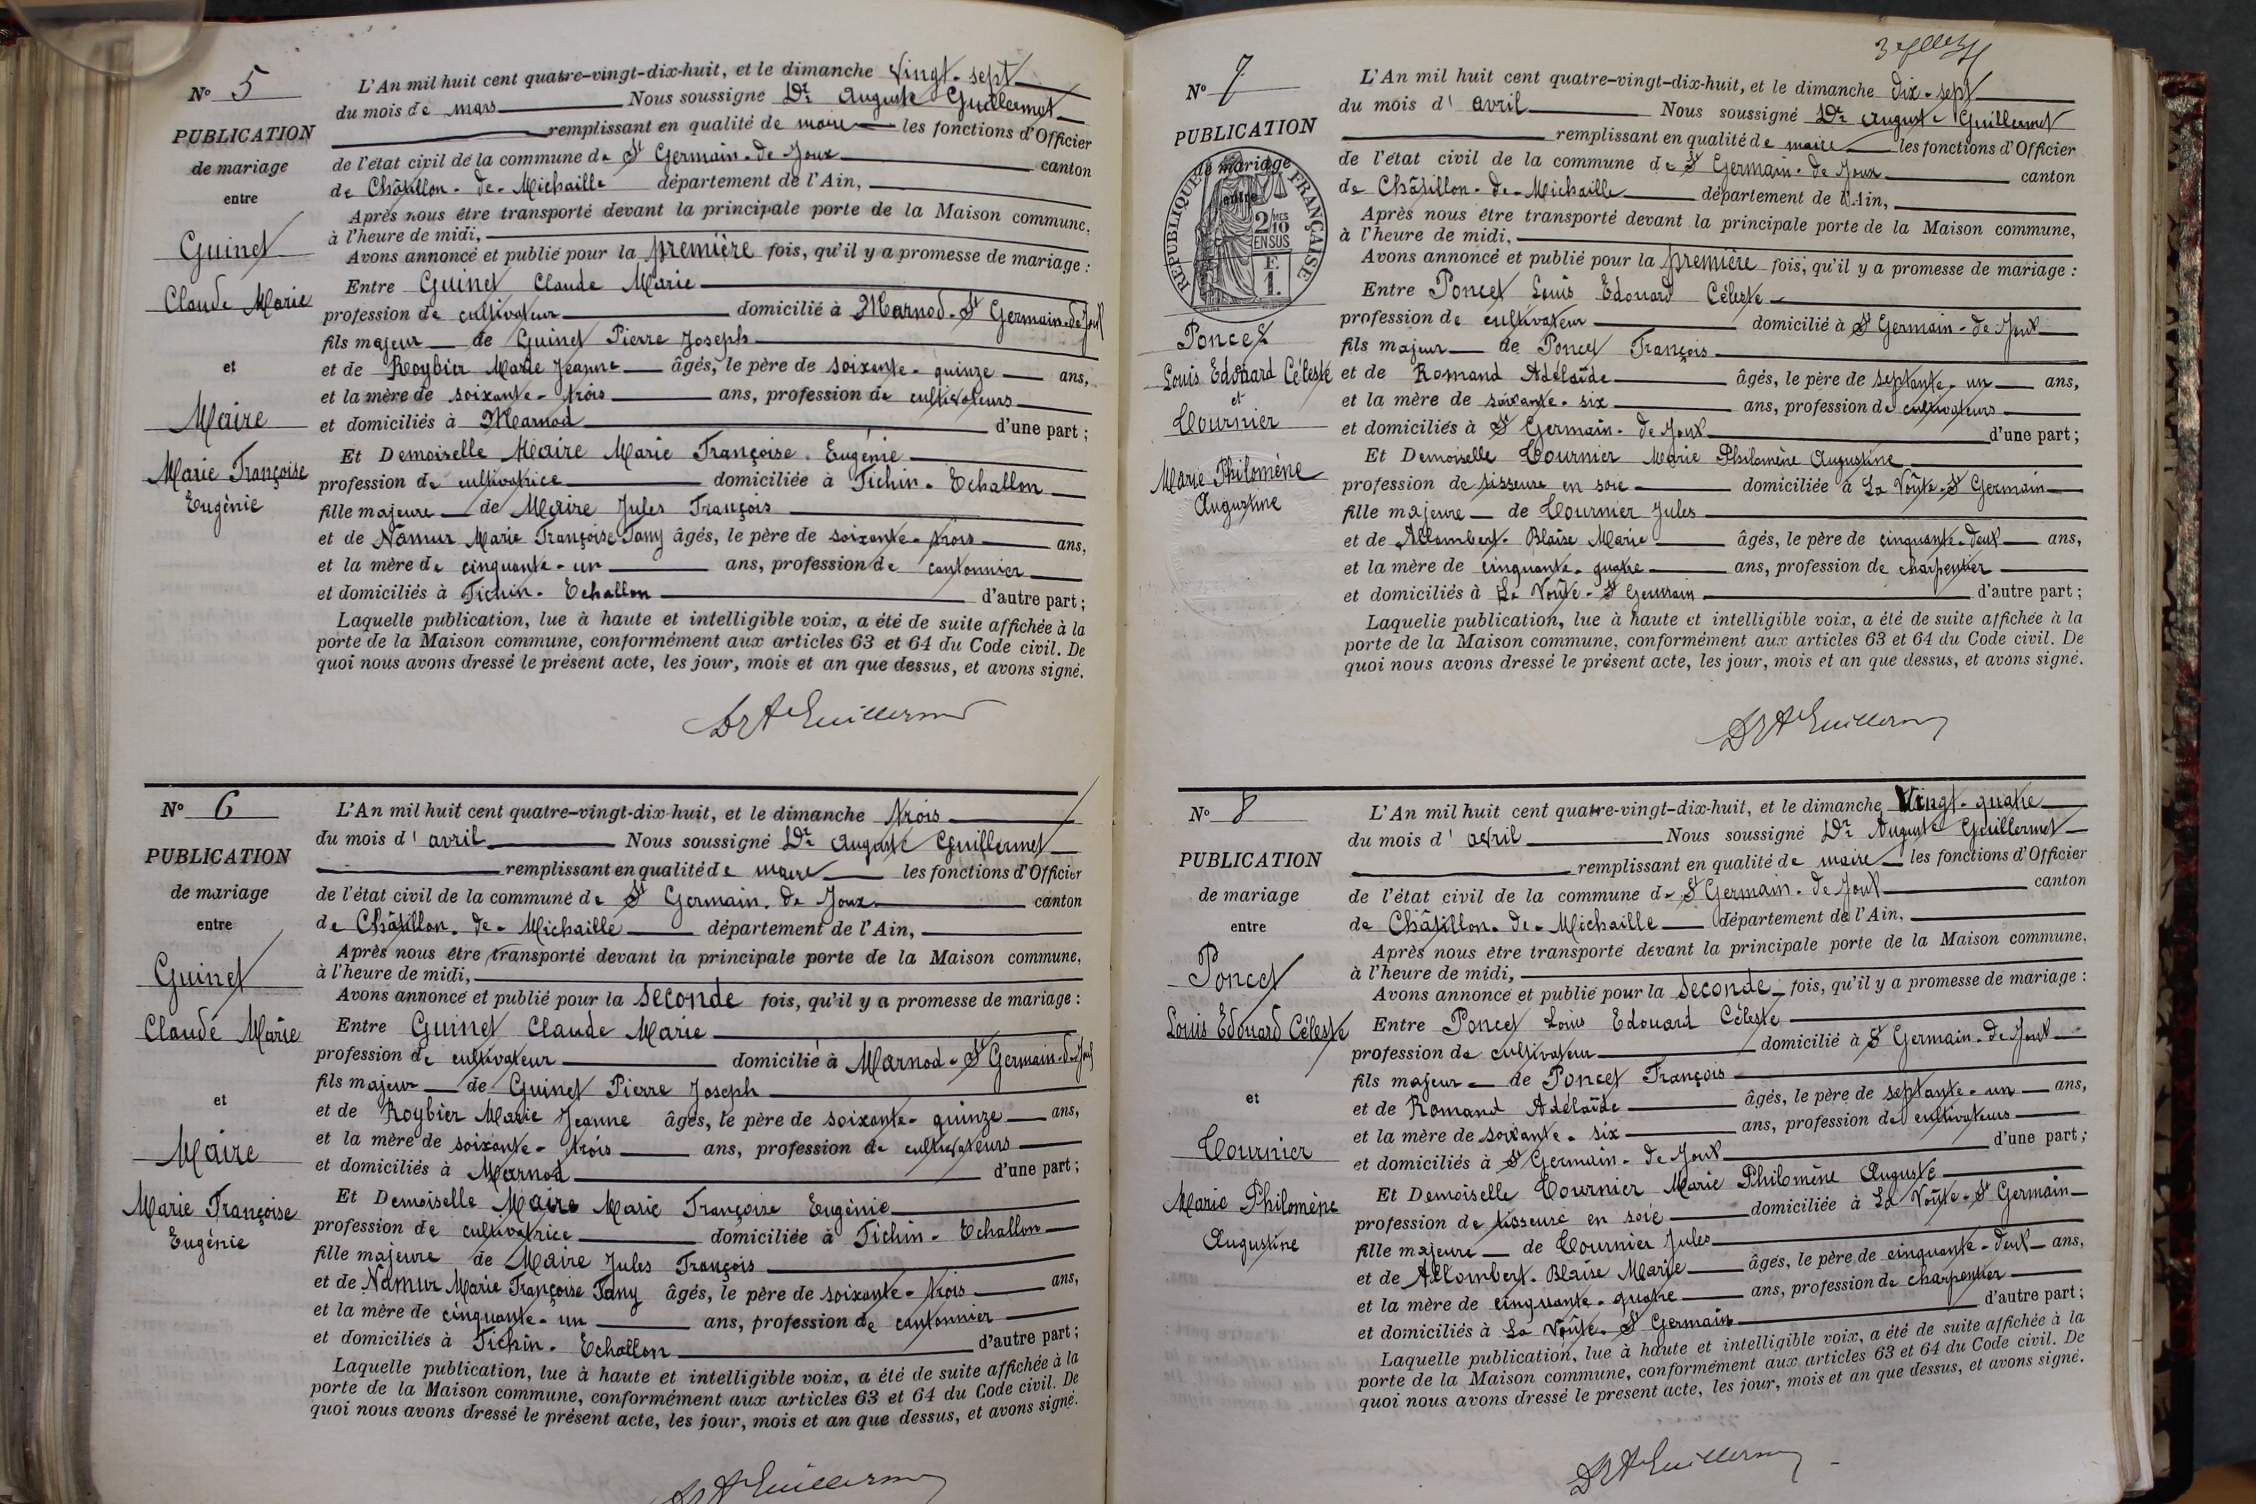 N° 5
PUBLICATION
de mariage
entre
Guinet
Claude Marie
et
Maire
Marie Françoise
Eugénie
L'An mil huit cent quatre-vingt-dix-huit, et le dimanche vingt-sept
du mois de mars Nous soussigné Dr Auguste Guillermet
remplissant en qualité de maire les fonctions d'Officier
de l'état civil de la commune de St Germain-de-Joux canton
de Châtillon-de-Michaille département de l'Ain,
Après nous être transporté devant la principale porte de la Maison commune,
à l'heure de midi,
Avons annoncé et publié pour la première fois, qu'il y a promesse de mariage :
Entre Guinet Claude Marie
profession de cultivateur domicilié à Marnod-St Germain-de-Joux
fils majeur de Guinet Pierre Joseph
et de Roybier Marie Jeanne âgés, le père de soixante-quinze ans,
et la mère de soixante-trois ans, profession de cultivateurs
et domiciliés à Marnod d'une part ;
Et Demoiselle Maire Marie Françoise Eugénie
profession de cultivatrice domiciliée à Tichin-Echallon
fille majeure de Maire Jules François
et de Namur Marie Françoise Fany âgés, le père de soixante-trois ans,
et la mère de cinquante-un ans, profession de cantonnier
et domiciliés à Tichin-Echallon d'autre part ;
Laquelle publication, lue à haute et intelligible voix, a été de suite affichée à la
porte de la Maison commune, conformément aux articles 63 et 64 du Code civil. De
quoi nous avons dressé le présent acte, les jour, mois et an que dessus, et avons signé.
Dr Ate Guillermet
N° 6
PUBLICATION
de mariage
entre
Guinet
Claude Marie
et
Maire
Marie Françoise
Eugénie
L'An mil huit cent quatre-vingt-dix-huit, et le dimanche trois
du mois d'avril Nous soussigné Dr Auguste Guillermet
remplissant en qualité de maire les fonctions d'Officier
de l'état civil de la commune de St Germain-de-Joux canton
de Châtillon-de-Michaille département de l'Ain,
Après nous être transporté devant la principale porte de la Maison commune,
à l'heure de midi,
Avons annoncé et publié pour la seconde fois, qu'il y a promesse de mariage :
Entre Guinet Claude Marie
profession de cultivateur domicilié à Marnod-St Germain-de-Joux
fils majeur de Guinet Pierre Joseph
et de Roybier Marie Jeanne âgés, le père de soixante-quinze ans,
et la mère de soixante-trois ans, profession de cultivateurs
et domiciliés à Marnod d'une part ;
Et Demoiselle Maire Marie Françoise Eugénie
profession de cultivatrice domiciliée à Tichin-Echallon
fille majeure de Maire Jules François
et de Namur Marie Françoise Fany âgés, le père de soixante-trois ans,
et la mère de cinquante-un ans, profession de cantonnier
et domiciliés à Tichin-Echallon d'autre part ;
Laquelle publication, lue à haute et intelligible voix, a été de suite affichée à la
porte de la Maison commune, conformément aux articles 63 et 64 du Code civil. De
quoi nous avons dressé le présent acte, les jour, mois et an que dessus, et avons signé.
Dr Ate Guillermet
N° 7
PUBLICATION
de mariage
entre
RÉPUBLIQUE FRANÇAISE
2/10 MES
EN SUS
F.
1.
Poncet
Louis Edouard Céleste
et
Cournier
Marie Philomène
Augustine
L'An mil huit cent quatre-vingt-dix-huit, et le dimanche dix-sept
du mois d'avril Nous soussigné Dr Auguste Guillermet
remplissant en qualité de maire les fonctions d'Officier
de l'état civil de la commune de St Germain-de-Joux canton
de Châtillon-de-Michaille département de l'Ain,
Après nous être transporté devant la principale porte de la Maison commune,
à l'heure de midi,
Avons annoncé et publié pour la première fois, qu'il y a promesse de mariage :
Entre Poncet Louis Edouard Céleste
profession de cultivateur domicilié à St Germain-de-Joux
fils majeur de Poncet François
et de Romand Adélaïde âgés, le père de septante-un ans,
et la mère de soixante-six ans, profession de cultivateurs
et domiciliés à St Germain-de-Joux d'une part ;
Et Demoiselle Cournier Marie Philomène Augustine
profession de tisseuse en soie domiciliée à La Voûte-St Germain
fille majeure de Cournier Jules
et de Allombert-Blaise Marie âgés, le père de cinquante-deux ans,
et la mère de cinquante-quatre ans, profession de charpentier
et domiciliés à La Voûte-St Germain d'autre part ;
Laquelle publication, lue à haute et intelligible voix, a été de suite affichée à la
porte de la Maison commune, conformément aux articles 63 et 64 du Code civil. De
quoi nous avons dressé le présent acte, les jour, mois et an que dessus, et avons signé.
Dr Ate Guillermet
N° 8
PUBLICATION
de mariage
entre
Poncet
Louis Edouard Céleste
et
Cournier
Marie Philomène
Augustine
L'An mil huit cent quatre-vingt-dix-huit, et le dimanche Vingt-quatre
du mois d'avril Nous soussigné Dr Auguste Guillermet
remplissant en qualité de maire les fonctions d'Officier
de l'état civil de la commune de St Germain-de-Joux canton
de Châtillon-de-Michaille département de l'Ain,
Après nous être transporté devant la principale porte de la Maison commune,
à l'heure de midi,
Avons annoncé et publié pour la seconde fois, qu'il y a promesse de mariage :
Entre Poncet Louis Edouard Céleste
profession de cultivateur domicilié à St Germain-de-Joux
fils majeur de Poncet François
et de Romand Adélaïde âgés, le père de septante-un ans,
et la mère de soixante-six ans, profession de cultivateurs
et domiciliés à St Germain-de-Joux d'une part ;
Et Demoiselle Cournier Marie Philomène Auguste
profession de tisseuse en soie domiciliée à La Voûte-St Germain
fille majeure de Cournier Jules
et de Allombert-Blaise Marie âgés, le père de cinquante-deux ans,
et la mère de cinquante-quatre ans, profession de charpentier
et domiciliés à La Voûte-St Germain d'autre part ;
Laquelle publication, lue à haute et intelligible voix, a été de suite affichée à la
porte de la Maison commune, conformément aux articles 63 et 64 du Code civil. De
quoi nous avons dressé le présent acte, les jour, mois et an que dessus, et avons signé.
Dr Ate Guillermet